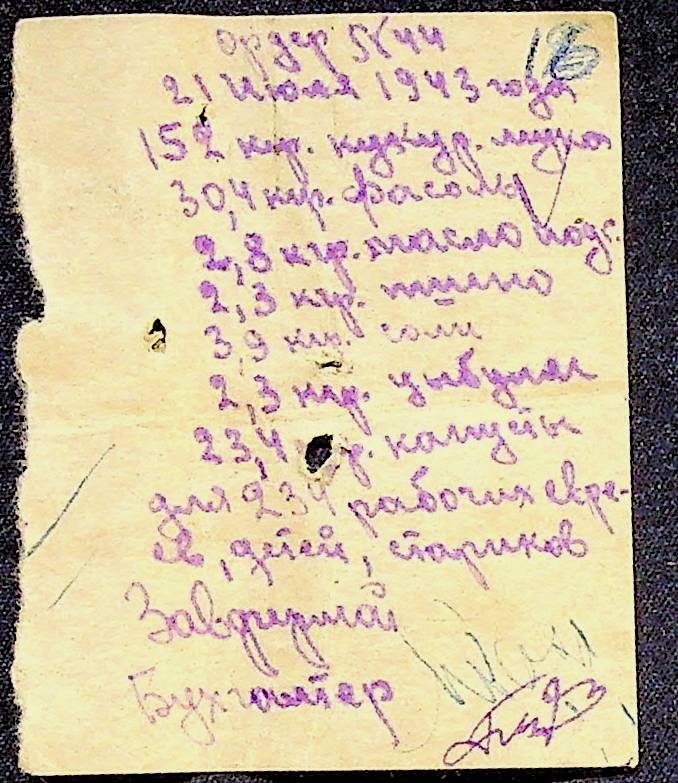 Ордер № 44
18
21 июля 1943 года
152 кгр. кукур. мука
30,4 кгр. фасоли
2,8 кгр. масло подс.
2,3 кгр. пшено
3,9 кгр. соли
2,3 кгр. цыбули
23,4 кгр. капусты
для 234 рабочих евре-
ев, детей, стариков
Завфермой
Бухгалтер